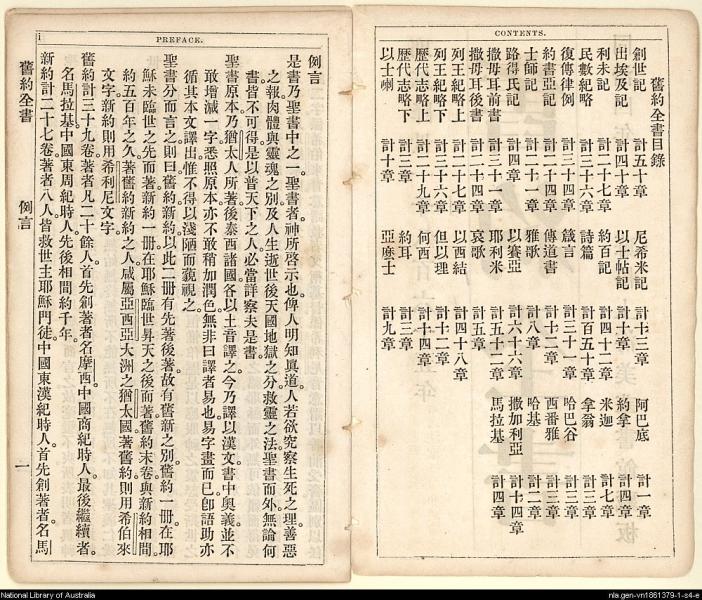 CONTENTS.
舊約全書目錄
創世記 計五十章 尼希米記 計十三章 阿巴底 計一章
出埃及記 計四十章 以士帖記 計十章 約拿 計四章
利未記 計二十七章 約百記 計四十二章 米迦 計七章
民數紀略 計三十六章 詩篇 計百五十章 拿翁 計三章
復傳律例 計三十四章 箴言 計三十一章 哈巴谷 計三章
約書亞記 計二十四章 傳道書 計十二章 西番雅 計三章
士師記 計二十一章 雅歌 計八章 哈基 計二章
路得氏記 計四章 以賽亞 計六十六章 撒加利亞 計十四章
撒毋耳前書 計三十一章 耶利米 計五十二章 馬拉基 計四章
撒毋耳後書 計二十四章 哀歌 計五章
列王紀略上 以西結 計四十八章
列王紀略下 但以理 計十二章
歷代志略上 計二十九章 何西 計十四章
歷代志略下 約耳 計三章
以士喇 計十章 亞麽士 計九章
i PREFACE.
例言
是書乃聖書中之一聖書者神所啓示也俾人明知眞道人若欲究察生死之理善惡
之報肉體與靈魂之別及人生逝世後天國地獄之分救靈之法聖書而外無論何
書皆不可得是以普天下之人必當詳察夫是書
聖書原本乃猶太人所著後泰西諸國各以土音譯之今乃譯以漢文書中奥義並不
敢增減一字悉照原本亦不敢稍加潤色無非曰譯者易也易字畫而已卽語助亦
循其本文譯出惟不得以淺陋而藐視之
聖書分而言之則曰舊約新約以此二冊有先著後著故有舊新之別舊約一冊在耶
穌未臨世之先而著新約一冊在耶穌臨世昇天之後而著舊約末卷與新約相間
約五百年之久著舊約新約之人咸屬亞西亞大洲之猶太國著舊約則用希伯來
文字新約則用希利尼文字
舊約計三十九卷著者凡二十餘人首先創著者名摩西中國商紀時人最後繼續者
名馬拉基中國東周紀時人先後相間約千年
新約計二十七卷著者八人皆救世主耶穌門徒中國東漢紀時人首先創著者名馬
舊約全書 例言 一
National Library of Australia
nla.gen-vn1861379-1-s4-e